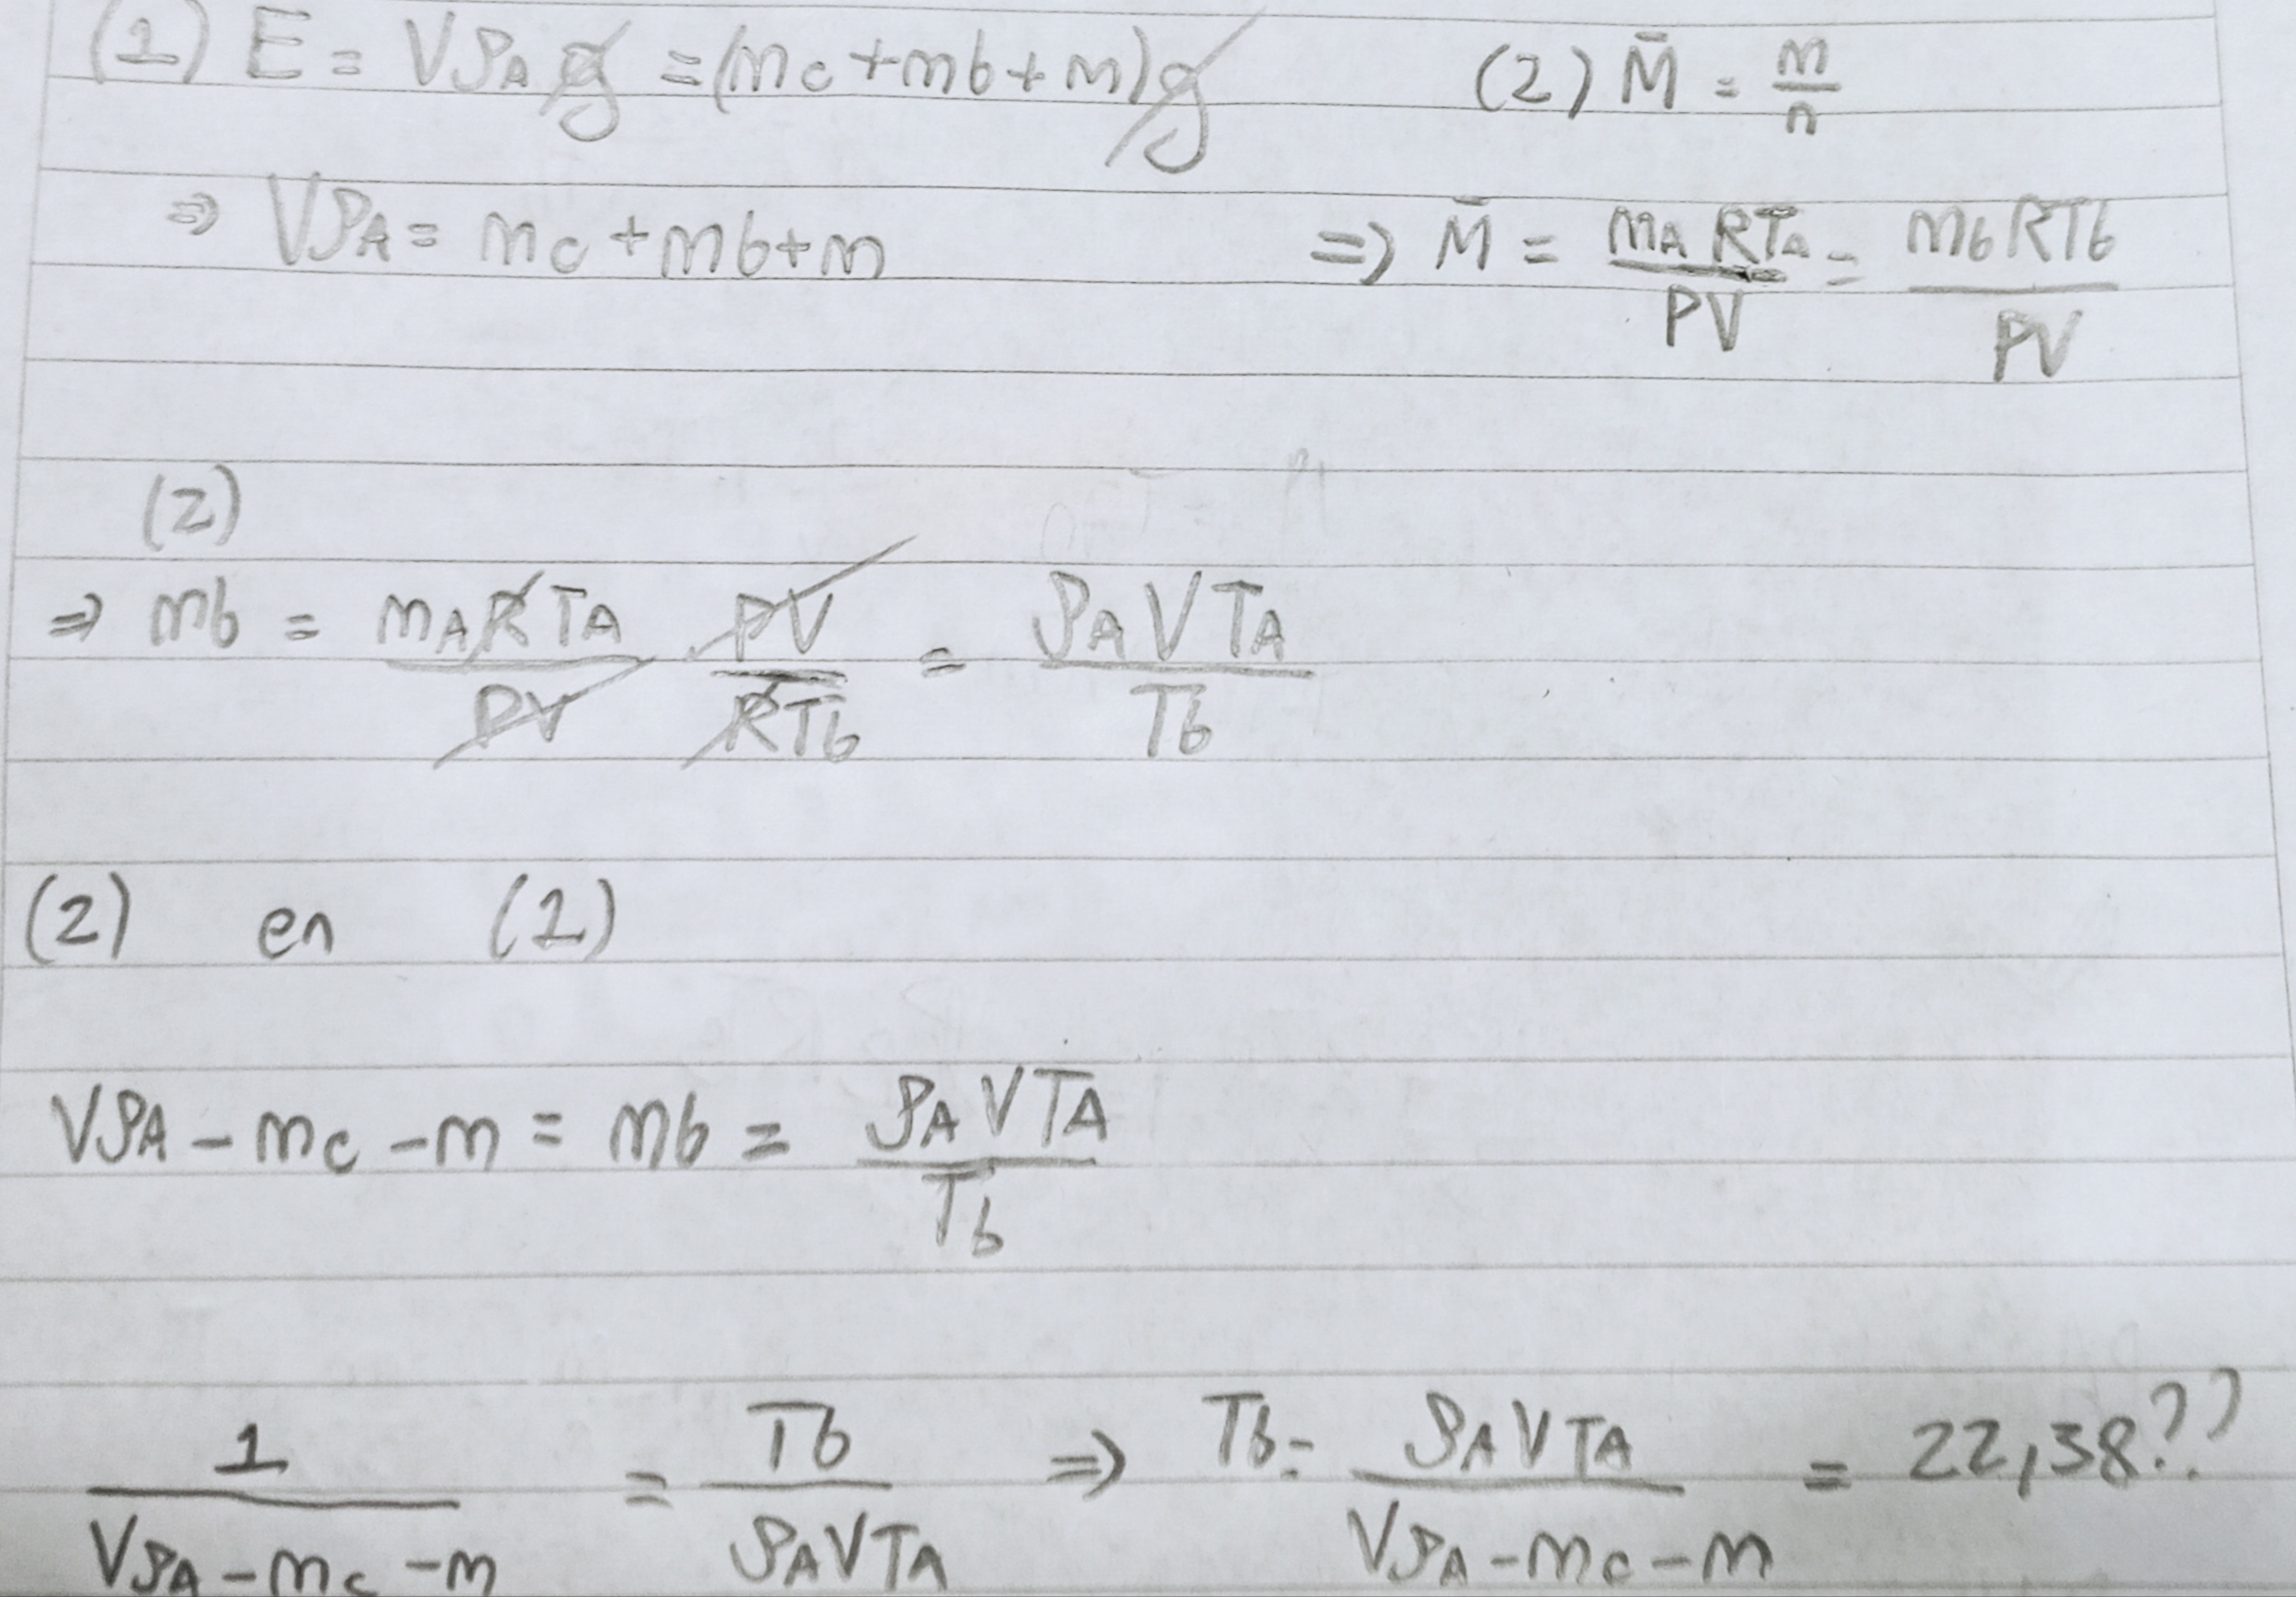 (1) E = Vρ_A g = (m_c + m_b + m)g (2) M̄ = m/n
⇒ Vρ_A = m_c + m_b + m ⇒ M̄ = m_A RT_A/PV = m_b RT_b/PV
(2)
⇒ m_b = m_A RT_A/PV PV/RT_b = ρ_A V T_A/T_b
(2) en (1)
Vρ_A - m_c - m = m_b = ρ_A V T_A/T_b
1/(Vρ_A - m_c - m) = T_b/(ρ_A V T_A) ⇒ T_b = ρ_A V T_A/(Vρ_A - m_c - m) = 22,38??